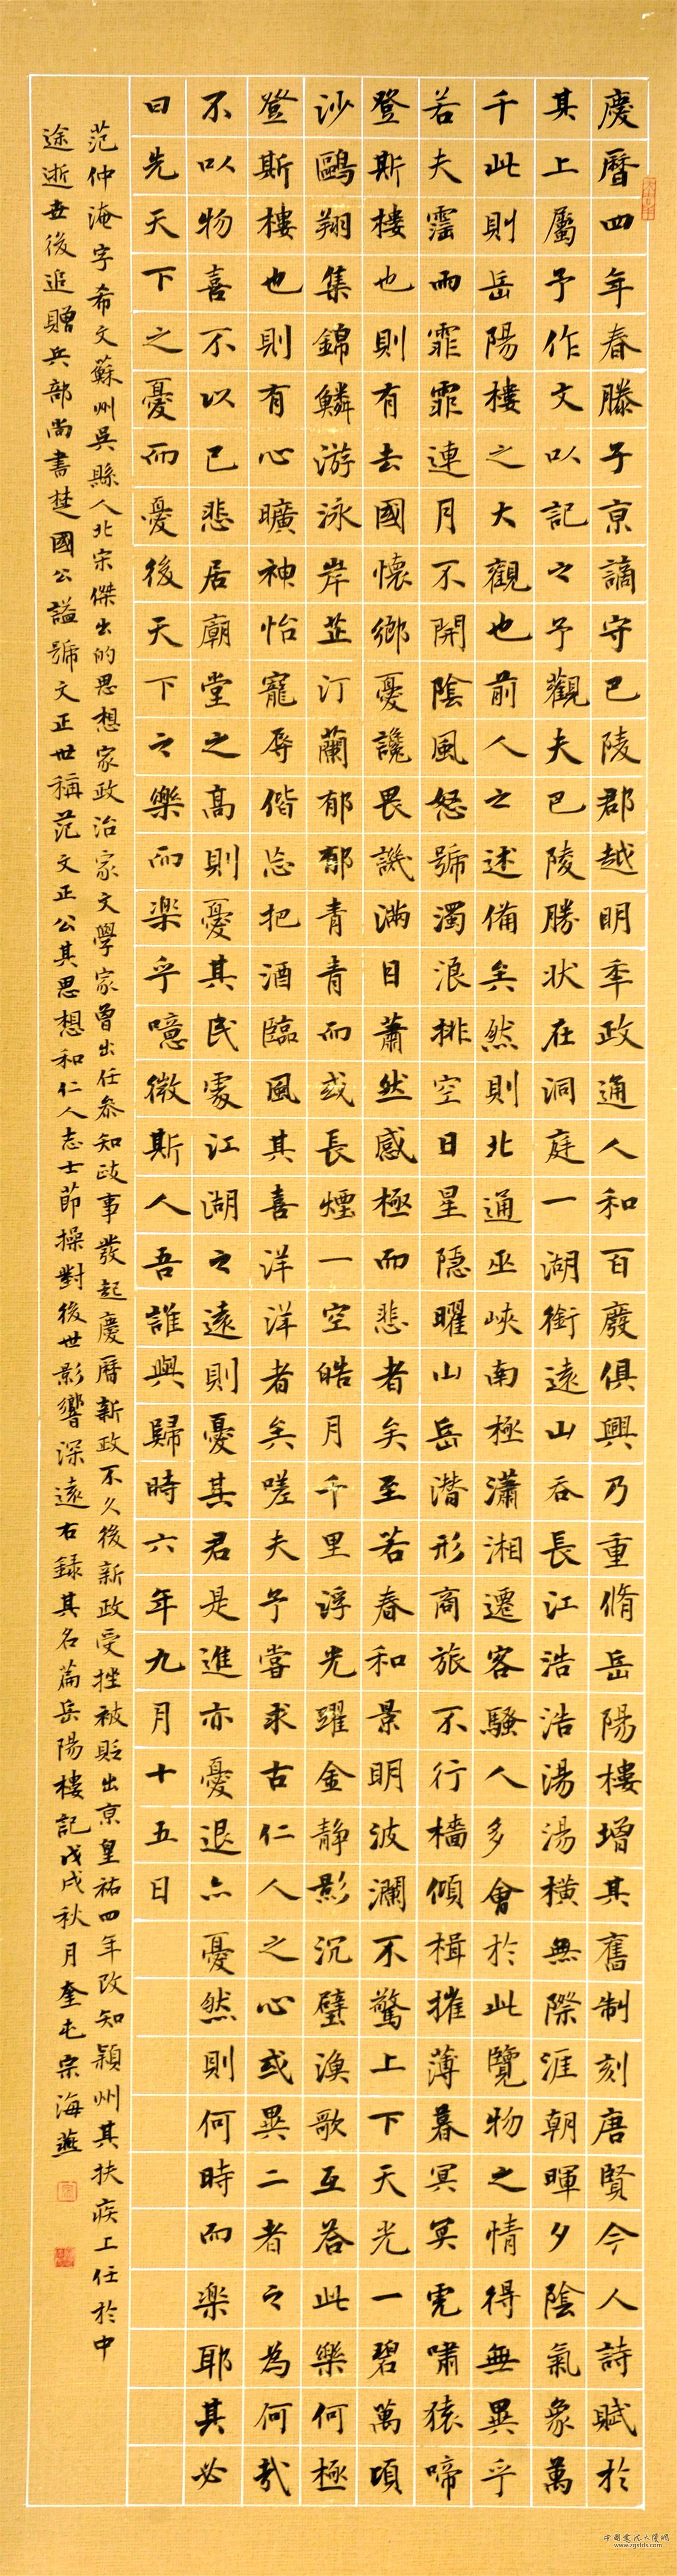 慶曆四年春滕子京謫守巴陵郡越明年政通人和百廢俱興乃重脩岳陽樓增其舊制刻唐賢今人詩賦於
其上屬予作文以記之予觀夫巴陵勝狀在洞庭一湖銜遠山吞長江浩浩湯湯橫無際涯朝暉夕陰氣象萬
千此則岳陽樓之大觀也前人之述備矣然則北通巫峽南極瀟湘遷客騷人多會於此覽物之情得無異乎
若夫霪雨霏霏連月不開陰風怒號濁浪排空日星隱曜山岳潛形商旅不行檣傾楫摧薄暮冥冥虎嘯猿啼
登斯樓也則有去國懷鄉憂讒畏譏滿目蕭然感極而悲者矣至若春和景明波瀾不驚上下天光一碧萬頃
沙鷗翔集錦鱗游泳岸芷汀蘭郁郁青青而或長煙一空皓月千里浮光躍金靜影沉璧漁歌互答此樂何極
登斯樓也則有心曠神怡寵辱偕忘把酒臨風其喜洋洋者矣嗟夫予嘗求古仁人之心或異二者之為何哉
不以物喜不以己悲居廟堂之高則憂其民處江湖之遠則憂其君是進亦憂退亦憂然則何時而樂耶其必
曰先天下之憂而憂後天下之樂而樂乎噫微斯人吾誰與歸時六年九月十五日
范仲淹字希文蘇州吳縣人北宋傑出的思想家政治家文學家曾出任參知政事發起慶曆新政不久後新政受挫被貶出京皇祐四年改知潁州其扶疾上任於中
途逝世後追贈兵部尚書楚國公謚號文正世稱范文正公其思想和仁人志士節操對後世影響深遠右錄其名篇岳陽樓記戊戌秋月奎屯宗海燕
中国书法大厦网
www.zgsfds.com